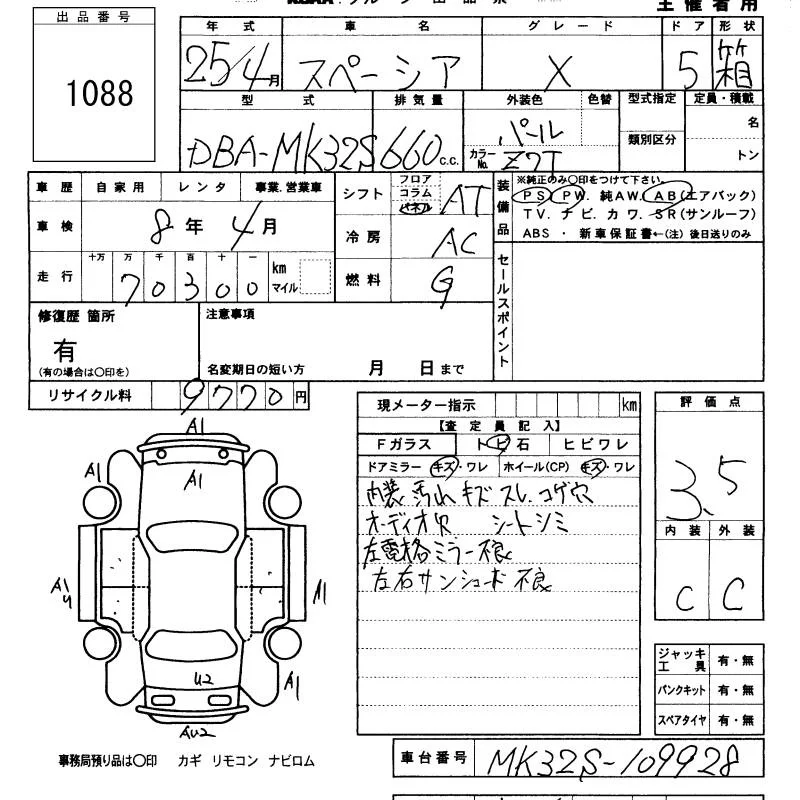 主催者用
出品番号
1088
年式 車名 グレード ドア 形状
25/4月 スペーシア X 5 箱
型式 排気量 外装色 色替 型式指定 定員・積載
DBA-MK32S 660c.c. パール カラーNo. Z7T 類別区分 名 トン
車歴 自家用 レンタ 事業.営業車 シフト フロア コラム パネル AT
装備品 ※純正のみ〇印をつけて下さい。
PS PW. 純AW. AB(エアバック)
TV. ナビ. カワ. SR(サンルーフ)
ABS ・ 新車保証書←(注) 後日送りのみ
車検 8年4月 冷房 AC
走行 十万 万 千 百 十 一
70300 km マイル 燃料 G
セールスポイント
修復歴 箇所 注意事項
有
(有の場合は〇印を) 名変期日の短い方 月 日まで
リサイクル料 9770円
現メーター指示 km 評価点
【査定員記入】
Fガラス トビ石 ヒビワレ
ドアミラー キズ・ワレ ホイール(CP) キズ・ワレ
3.5
内装 汚れ キズ スレ. コゲ穴
オーディオ欠 シートシミ
左電格ミラー不良
左右サンシェード 不良
内装 外装
C C
A1
A1
A1
A1
U
A1
U2
A1
AU2
ジャッキ工具 有・無
パンクキット 有・無
スペアタイヤ 有・無
事務局預り品は〇印 カギ リモコン ナビロム
車台番号 MK32S-109928